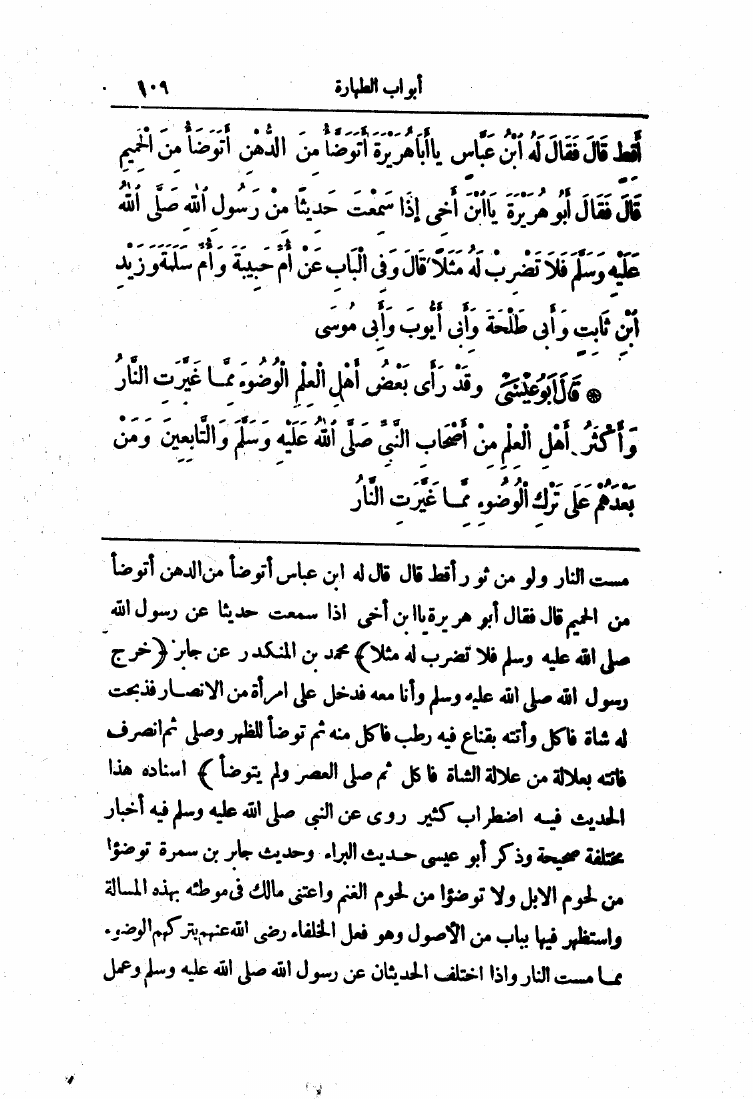 أبواب الطهارة ١٠٩
أَقِطٍ قَالَ فَقَالَ لَهُ ابْنُ عَبَّاسٍ يَا أَبَا هُرَيْرَةَ أَتَوَضَّأُ مِنَ الدُّهْنِ أَتَوَضَّأُ مِنَ الْحَمِيمِ
قَالَ فَقَالَ أَبُو هُرَيْرَةَ يَا ابْنَ أَخِى إِذَا سَمِعْتَ حَدِيثًا مِنْ رَسُولِ اللهِ صَلَّى اللهُ
عَلَيْهِ وَسَلَّمَ فَلَا تَضْرِبْ لَهُ مَثَلًا قَالَ وَفِى الْبَابِ عَنْ أُمِّ حَبِيبَةَ وَأُمِّ سَلَمَةَ وَزَيْدِ
ابْنِ ثَابِتٍ وَأَبِى طَلْحَةَ وَأَبِى أَيُّوبَ وَأَبِى مُوسَى
۞ قَالَ أَبُو عِيسَى وَقَدْ رَأَى بَعْضُ أَهْلِ الْعِلْمِ الْوُضُوءَ مِمَّا غَيَّرَتِ النَّارُ
وَأَكْثَرُ أَهْلِ الْعِلْمِ مِنْ أَصْحَابِ النَّبِىِّ صَلَّى اللهُ عَلَيْهِ وَسَلَّمَ وَالتَّابِعِينَ وَمَنْ
بَعْدَهُمْ عَلَى تَرْكِ الْوُضُوءِ مِمَّا غَيَّرَتِ النَّارُ
مست النار ولو من ثور أقط قال قال له ابن عباس أتوضأ من الدهن أتوضأ
من الحميم قال فقال أبو هريرة ياابن أخى اذا سمعت حديثا عن رسول الله
صلى الله عليه وسلم فلا تضرب له مثلا﴾ محمد بن المنكدر عن جابر ﴿خرج
رسول الله صلى الله عليه وسلم وأنا معه فدخل على امرأة من الانصار فذبحت
له شاة فاكل وأتته بقناع فيه رطب فاكل منه ثم توضأ للظهر وصلى ثم انصرف
فاتته بعلالة من علالة الشاة فاكل ثم صلى العصر ولم يتوضأ ﴾ اسناده هذا
الحديث فيه اضطراب كثير روى عن النبى صلى الله عليه وسلم فيه أخبار
مختلفة صحيحة وذكر أبو عيسى حديث البراء وحديث جابر بن سمرة توضؤا
من لحوم الابل ولا توضؤا من لحوم الغنم واعتنى مالك فى موطئه بهذه المسالة
واستظهر فيها بباب من الأصول وهو فعل الخلفاء رضى الله عنهم بتركهم الوضوء
مما مست النار واذا اختلف الحديثان عن رسول الله صلى الله عليه وسلم وعمل